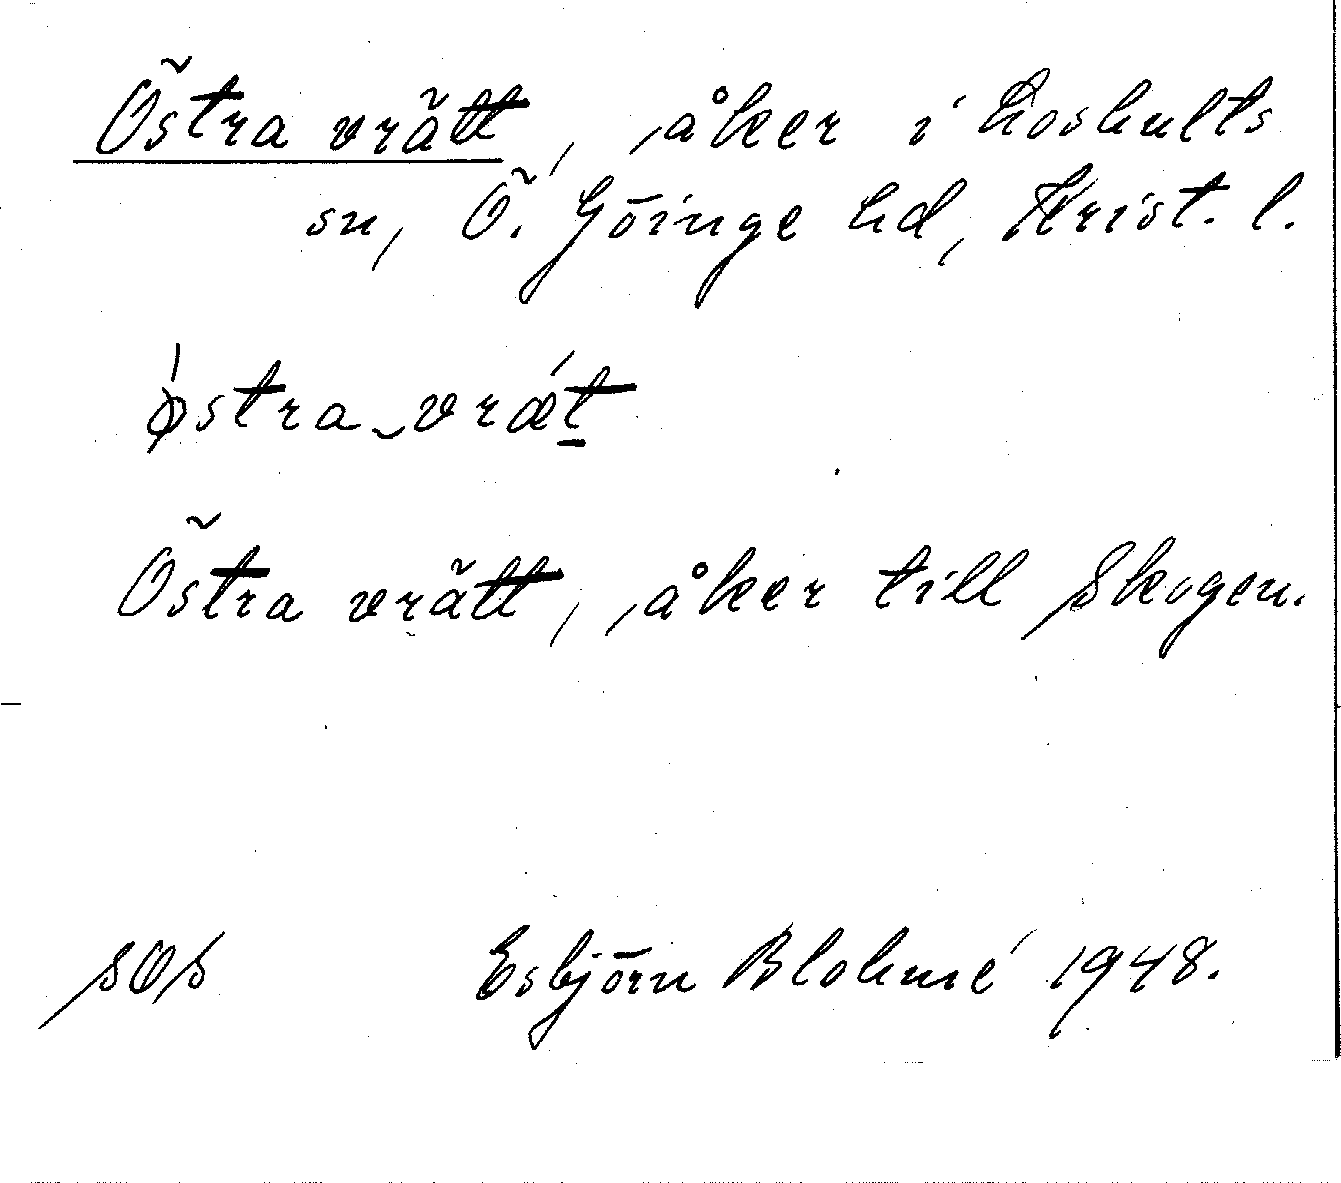 Östra vrätt, åker i Loshults
sn, Ö. Göinge hd, Krist. l.
ǿstra‿vrǽt̲
Östra vrätt, åker till Skogen.
SOS Esbjörn Blohmé 1948.